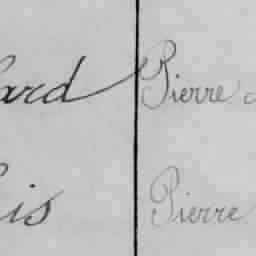 ard Pierre
is Pierre